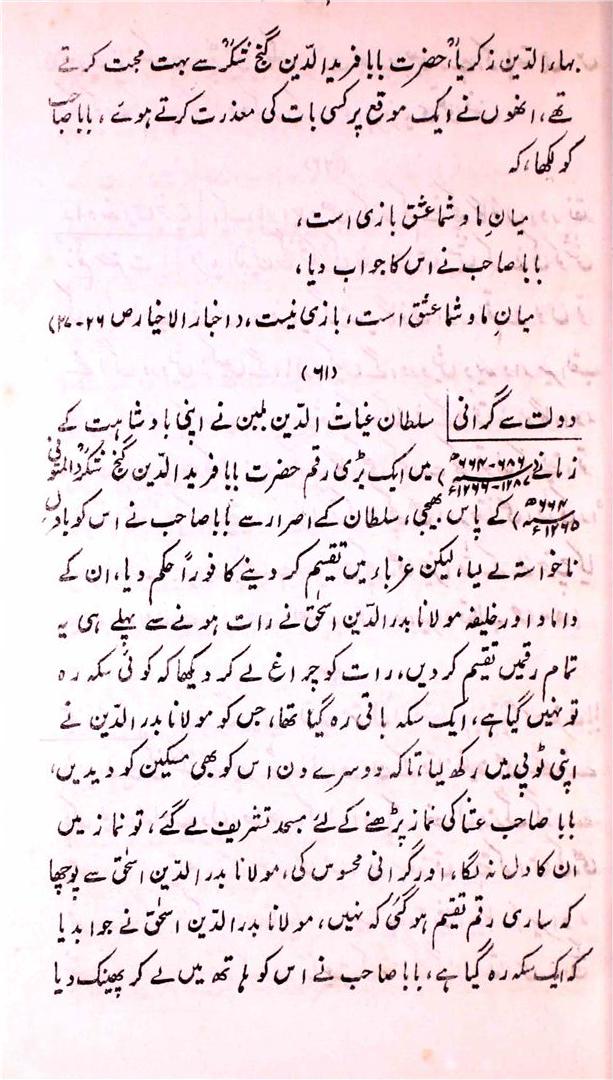 بہاء الدین زکریاؒ، حضرت بابا فرید الدین گنج شکرؒ سے بہت محبت کرتے
تھے، انھوں نے ایک موقع پر کسی بات کی معذرت کرتے ہوئے، بابا صاحب
کو لکھا، کہ
میانِ ما و شما عشق بازی است،
بابا صاحب نے اس کا جواب دیا،
میانِ ما و شما عشق است، بازی نیست، (اخبار الاخیار ص ۲۶-۲۷)
(۶۱)
دولت سے گرانی سلطان غیاث الدین بلبن نے اپنی بادشاہت کے
زمانے (۶۶۴-۶۸۶ھ ۱۲۶۶-۱۲۸۷ء) میں ایک بڑی رقم حضرت بابا فرید الدین گنج شکرؒ (المتوفی
۶۶۴ھ ۱۲۶۵ء) کے پاس بھیجی، سلطان کے اصرار سے بابا صاحب نے اس کو بادل
ناخواستہ لے لیا، لیکن غرباء میں تقسیم کر دینے کا فوراً حکم دیا، ان کے
داماد اور خلیفہ مولانا بدر الدین اسحٰق نے رات ہونے سے پہلے ہی یہ
تمام رقمیں تقسیم کر دیں، رات کو چراغ لے کر دیکھا کہ کوئی سکہ رہ
تو نہیں گیا ہے، ایک سکہ باقی رہ گیا تھا، جس کو مولانا بدر الدین نے
اپنی ٹوپی میں رکھ لیا، تاکہ دوسرے دن اس کو بھی مسکین کو دیدیں،
بابا صاحب عشا کی نماز پڑھنے کے لئے مسجد تشریف لے گئے، تو نماز میں
ان کا دل نہ لگا، اور گرانی محسوس کی، مولانا بدر الدین اسحٰق سے پوچھا
کہ ساری رقم تقسیم ہو گئی کہ نہیں، مولانا بدر الدین اسحٰق نے جواب دیا
کہ ایک سکہ رہ گیا ہے، بابا صاحب نے اس کو ہاتھ میں لے کر پھینک دیا